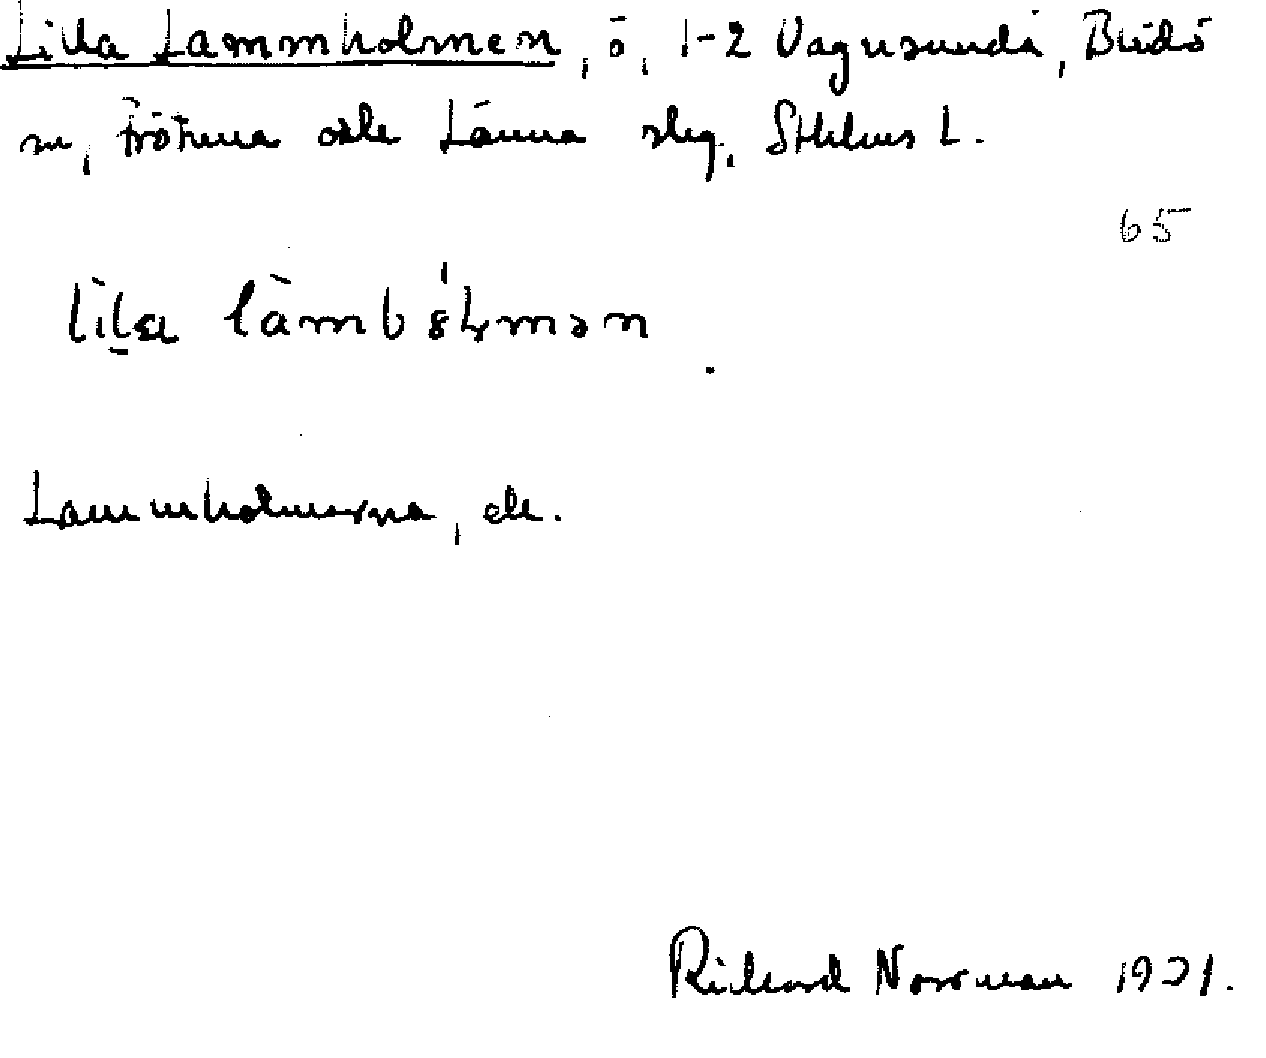 Lilla Lammholmen, ö, 1-2 Vagnsunda, Blidö
sn, Frötuna och Länna slg, Sthlms L.
65
lìl̠a làmbó̤ɭmən
Lammholmarna, ek.
Rickard Norrman 1931.